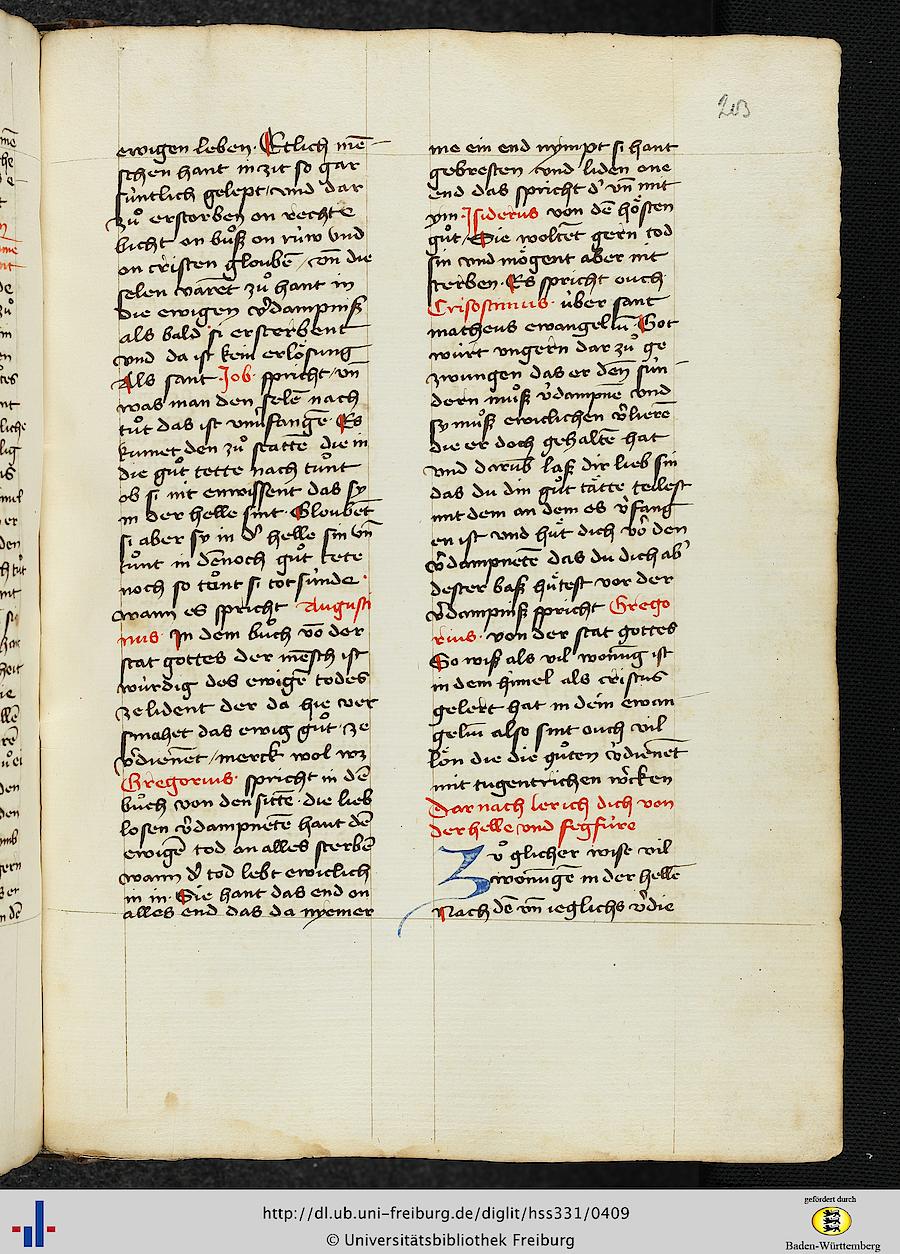 203
ewigen leben. Etlich mē
schen hant in zit so gar
suntlich gelept vnd dar
zuͦ erstorben on rechte
bicht on buͦß on ruw vnd
on cristen gloubē von die
selen varēt zuͦ hant in
die ewigen v̄dampniß
als bald si ersterbent
vnd da ist kein erlösung
Als sant Job spricht vn̄
was man den selē nach
tuͦt das ist vmsfangē Es
kumet den zuͦ statte die in
die guͦt tette nach tuͦnt
ob si nit enwissent das sy
in der helle sint Gloubēt
si aber sy in d' helle sin vn̄
tuͦnt in dēnoch guͦt tete
noch so toͤnt si totsünde
wann es spricht Augusti
nus In dem buͦch vō der
stat gottes der mēsch ist
würdig des ewigē todes
ze lident der da hie ver
smahet das ewig guͦt ze
v̄dienēt merck wol wz
Gregorius spricht in dē
buͦch von den sittē die lieb
losen v̄dampnetē hant dē
ewigē tod on alles sterbē
wann d' tod lebt ewiclich
in in Sie hant das end on
alles end das da nyemer
me ein end nympt si hant
gebresten vnd liden one
end das spricht d' vn̄ mit
ym Jsiderus von dē hösten
guͦt Sie woltēt gern tod
sin vnd mögent aber nit
sterben Es spricht ouch
Crisostimus über sant
matheus ewangeliū Got
würt vngern dar zuͦ ge
zwungen das er den sün
dern muͦß v̄dampnē vnd
sy muͦß ewiclichen v̄lierē
die er doch gehaltē hat
vnd darūb laß dir lieb sin
das du din guͦt tätte teilest
mit dem an dem es v̄fang
en ist vnd huͤt dich vō den
v̄dampnetē das du dich ab'
dester baß huͤtest vor der
v̄dampniß spricht Grego
rius von der stat gottes
So wiß als vil wonūg ist
in dem himel als cristus
gelert hat in dem ewan
geliū also sint ouch vil
lön die die guͦten v̄dienēt
mit tugentrichen w'cken
Dar nach ler ich dich von
der helle vnd fegfüre
Zuͦ glicher wise vil
wonūgē in der helle
Nach dē vn̄ ieglichs v̄die
http://dl.ub.uni-freiburg.de/diglit/hss331/0409
© Universitätsbibliothek Freiburg
gefördert durch
Baden-Württemberg